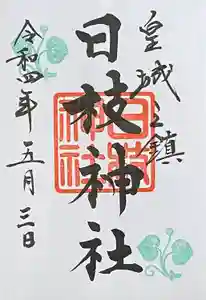 皇城之鎮
日枝神社
令和四年五月三日
日枝神社